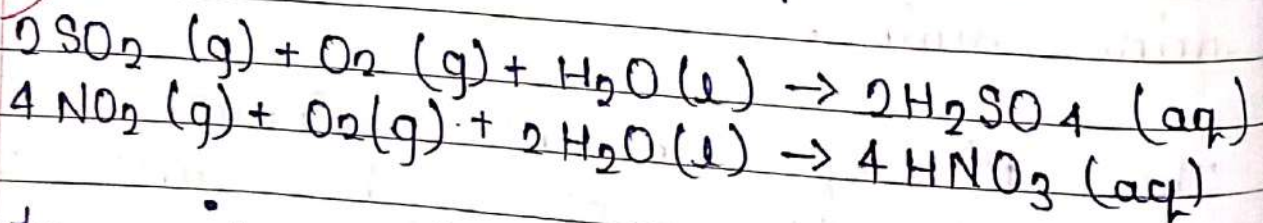 2SO₂ (g) + O₂ (g) + H₂O (l) → 2H₂SO₄ (aq)
4 NO₂ (g) + O₂(g) + 2H₂O (l) → 4 HNO₃ (aq)